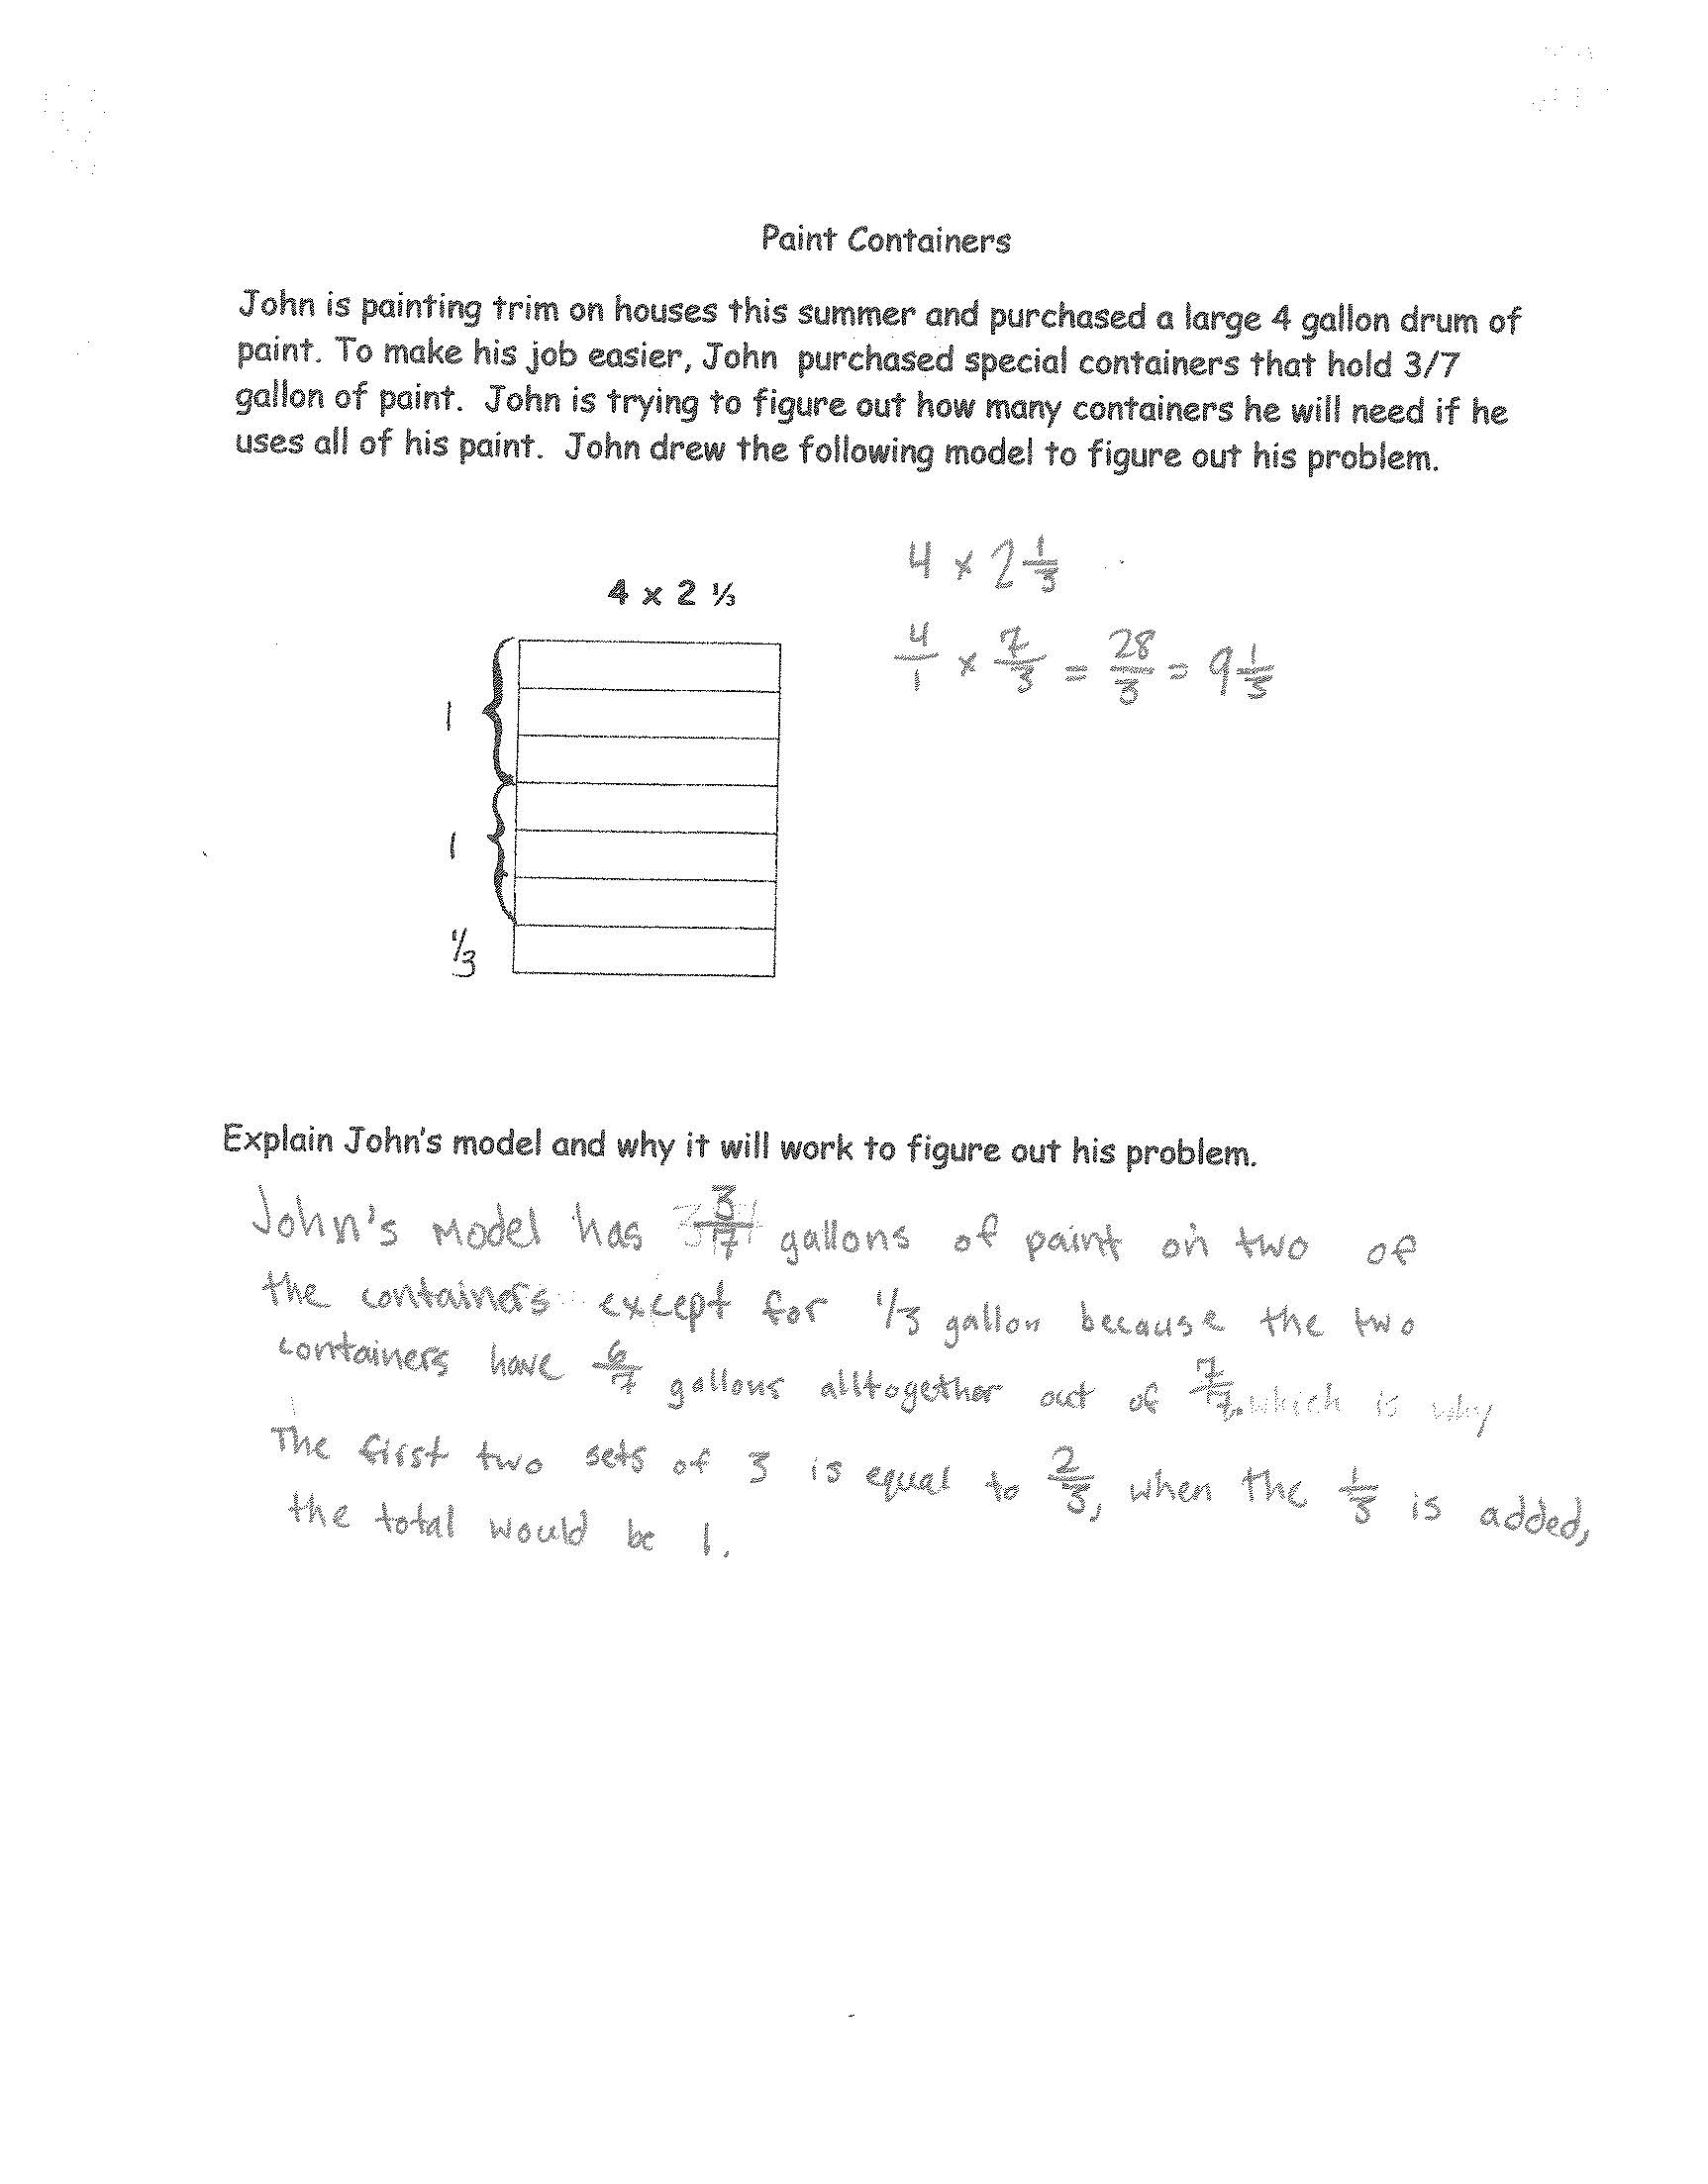 Paint Containers
John is painting trim on houses this summer and purchased a large 4 gallon drum of
paint. To make his job easier, John purchased special containers that hold 3/7
gallon of paint. John is trying to figure out how many containers he will need if he
uses all of his paint. John drew the following model to figure out his problem.
4 x 2 ⅓
4 x 2 1/3
4/1 x 7/3 = 28/3 = 9 1/3
1
1
1/3
Explain John's model and why it will work to figure out his problem.
John's model has 3/7 gallons of paint on two of
the containers except for 1/3 gallon because the two
containers have 6/7 gallons alltogether out of 7/7. which is why
The first two sets of 3 is equal to 2/3, when the 1/3 is added,
the total would be 1.